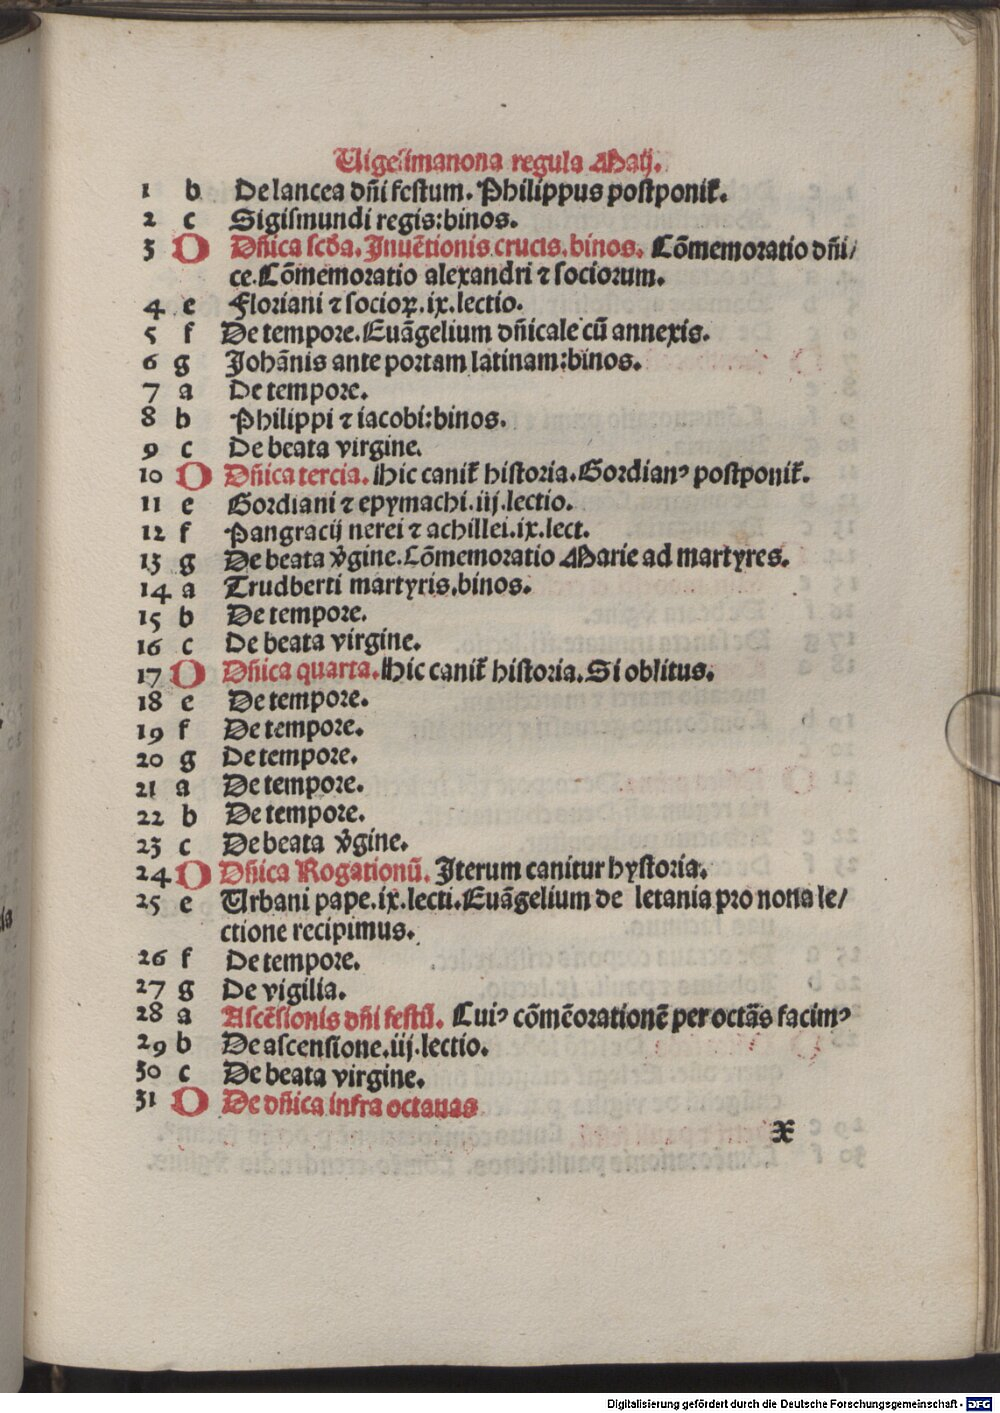 Uigesimanona regula Maij.
1 b De lancea dñi festum. Philippus postponit̃.
2 c Sigismundi regis:binos.
3 D Dñica scďa. Inuẽtionis crucis.binos. Cõmemoratio dñi/
ce.Cõmemoratio alexandri ⁊ sociorum.
4 e Floriani ⁊ socioꝝ.ix.lectio.
5 f De tempore.Euãgelium dñicale cũ annexis.
6 g Johãnis ante portam latinam:binos.
7 a De tempore.
8 b Philippi ⁊ iacobi:binos.
9 c De beata virgine.
10 D Dñica tercia. Hic canit̃ historia.Gordianꝰ postponit̃.
11 e Gordiani ⁊ epymachi.iij.lectio.
12 f Pangracij nerei ⁊ achillei.ix.lect.
13 g De beata v̾gine.Cõmemoratio Marie ad martyres.
14 a Trudberti martyris.binos.
15 b De tempore.
16 c De beata virgine.
17 D Dñica quarta.Hic canit̃ historia.Si oblitus.
18 e De tempore.
19 f De tempore.
20 g De tempore.
21 a De tempore.
22 b De tempore.
23 c De beata v̾gine.
24 D Dñica Rogationũ. Iterum canitur hystoria.
25 e Urbani pape.ix.lecti.Euãgelium de letania pro nona le/
ctione recipimus.
26 f De tempore.
27 g De vigilia.
28 a Ascẽsionis dñi festũ. Cuiꝰ cõmẽorationẽ per octãs facimꝰ
29 b De ascensione.iij.lectio.
30 c De beata virgine.
31 D De dñica infra octauas
x
Digitalisierung gefördert durch die Deutsche Forschungsgemeinschaft - DFG